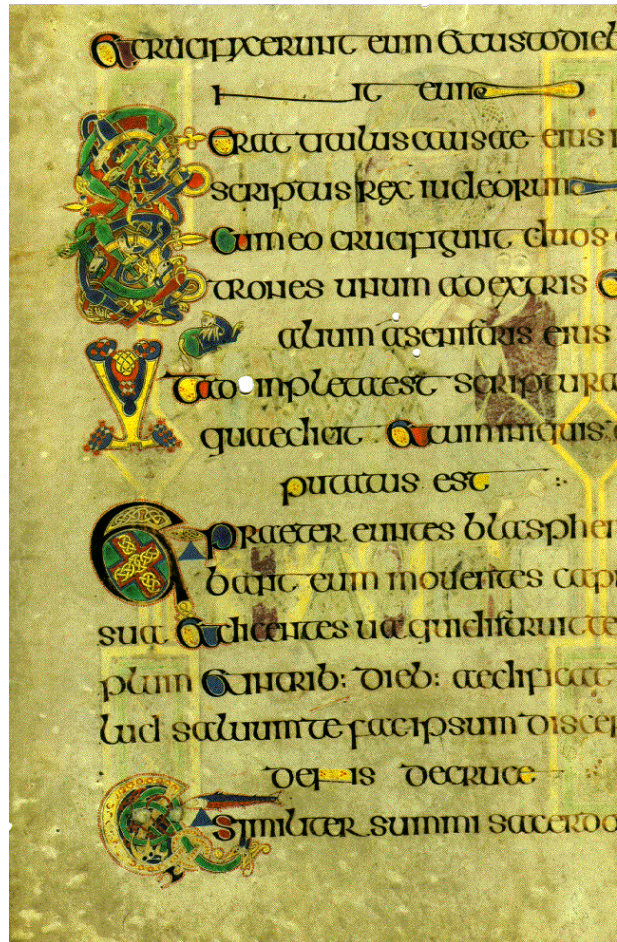 et crucifixerunt eum et custodieb
eum
Et erat titulus causae eius i
scriptus rex iudeorum
Et cum eo crucifigunt duos
trones unum a dextris et
alium a senistris eius
Ut adinpleta est scriptura
quae dicit et cum iniquis
putatus est
Et praeter euntes blasphe
bant eum mouentes capi
sua et dicentes ua qui distruit te
plum et in trib: dieb: aedificat
lud saluum te fac ipsum discen
dens de cruce
similiter summi sacerdo